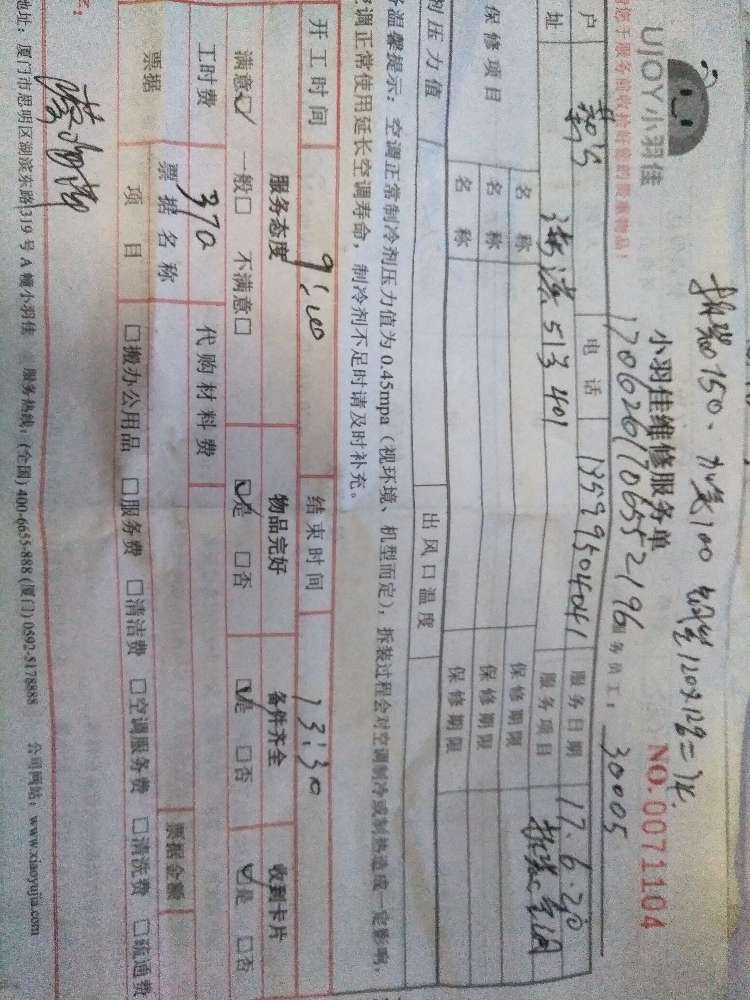 拆装150、加氟100
UJOY小羽佳
小羽佳维修服务单
NO.0071104
请您于服务前收拾好您的贵重物品!
170626170655 2196
服务员工: 30005
户
电话 13599504041 服务日期 17.6.26
址 51号401 服务项目 拆装空调
保修项目 名称 保修期限
名称 保修期限
名称 保修期限
剂压力值 出风口温度
温馨提示: 空调正常制冷剂压力值为0.45mpa (视环境、机型而定), 拆装过程会对空调制冷或制热造成一定影响,
调正常使用延长空调寿命, 制冷剂不足时请及时补充。
开工时间 9:00 结束时间 13:30
服务态度 物品完好 备件齐全 收到卡片
满意☑ 一般□ 不满意□ ☑是 □否 ☑是 □否 ☑是 □否
工时费 370 代购材料费
票据 票据名称 票据金额
项目 □搬办公用品 □服务费 □清洁费 □空调服务费 □清洗费 □疏通费
地址: 厦门市思明区湖滨东路319号A幢小羽佳 服务热线: (全国) 400-6655-888 (厦门) 0592-5178888 公司网站: www.xiaoyujia.com